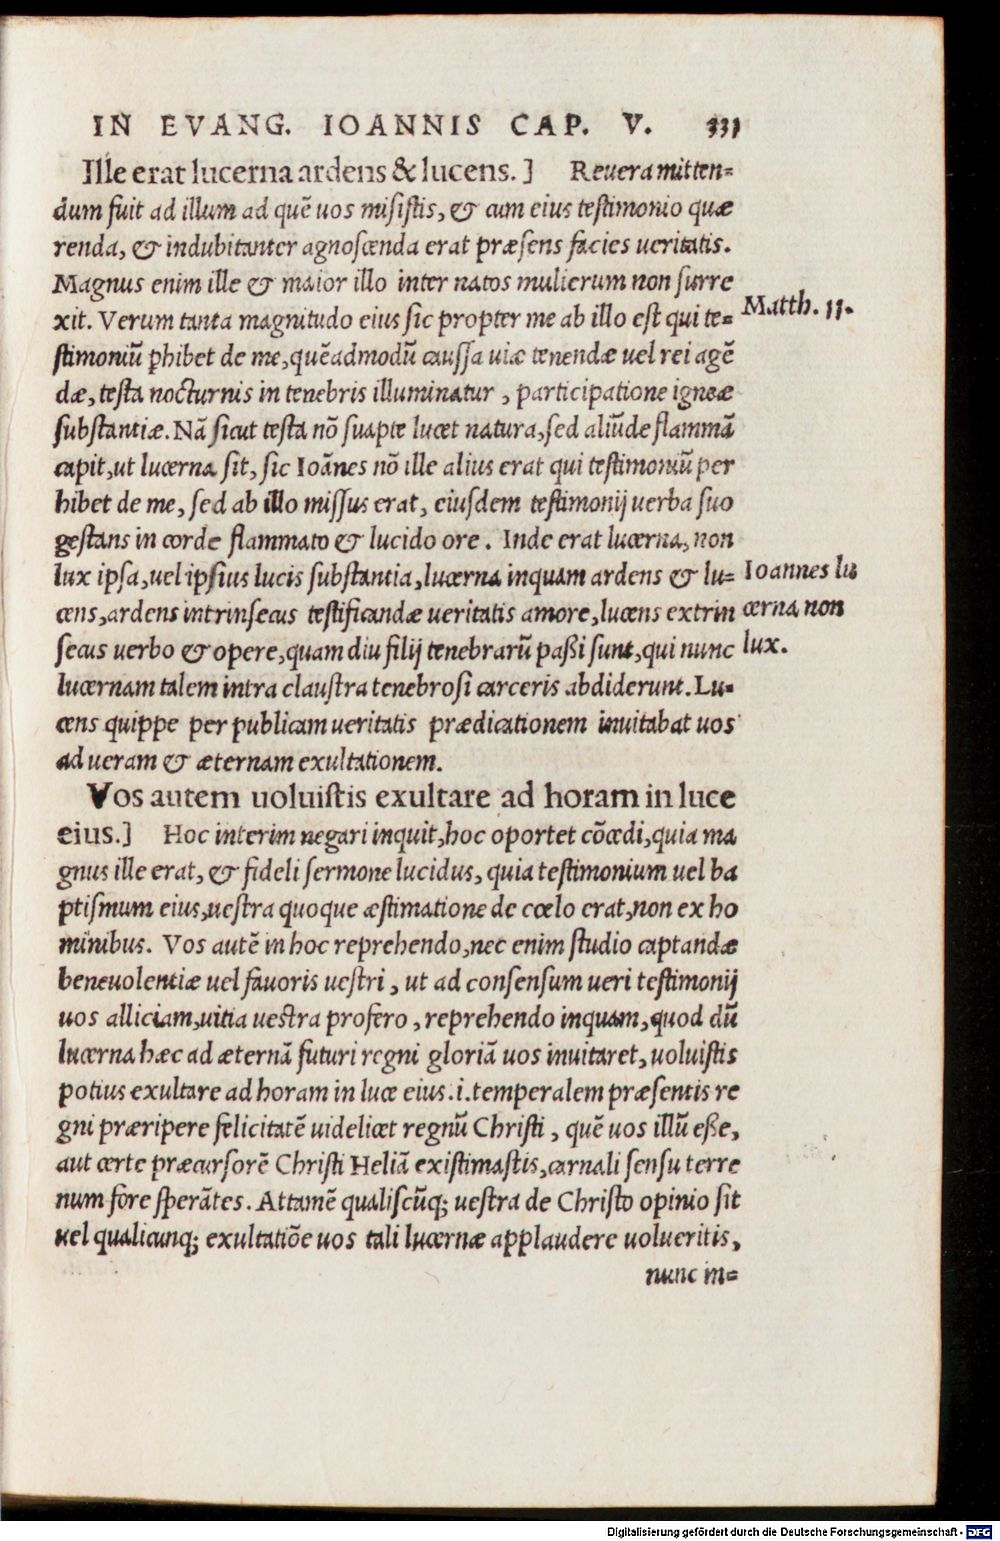 IN EVANG. IOANNIS CAP. V. 331
Ille erat lucerna ardens & lucens.] Reuera mitten=
dum fuit ad illum ad quē uos misistis, & cum eius testimonio quæ
renda, & indubitanter agnoscenda erat præsens facies ueritatis.
Magnus enim ille & maior illo inter natos mulierum non surre
xit. Verum tanta magnitudo eius sic propter me ab illo est qui te=
Matth. 11.
stimoniū phibet de me, quēadmodū caussa uiæ tenendæ uel rei agē
dæ, testa nocturnis in tenebris illuminatur, participatione igneæ
substantiæ. Nā sicut testa nō suapte lucet natura, sed aliūde flammā
capit, ut lucerna sit, sic Ioānes nō ille alius erat qui testimoniū per
hibet de me, sed ab illo missus erat, eiusdem testimonij uerba suo
gestans in corde flammato & lucido ore. Inde erat lucerna, non
lux ipsa, uel ipsius lucis substantia, lucerna inquam ardens & lu=
Ioannes lu
cens, ardens intrinsecus testificandæ ueritatis amore, lucens extrin
cerna non
secus uerbo & opere, quam diu filij tenebrarū passi sunt, qui nunc
lux.
lucernam talem intra claustra tenebrosi carceris abdiderunt. Lu=
cens quippe per publicam ueritatis prædicationem inuitabat uos
ad ueram & æternam exultationem.
Vos autem uoluistis exultare ad horam in luce
eius.] Hoc interim negari inquit, hoc oportet cōcedi, quia ma
gnus ille erat, & fideli sermone lucidus, quia testimonium uel ba
ptismum eius, uestra quoque æstimatione de cœlo erat, non ex ho
minibus. Vos autē in hoc reprehendo, nec enim studio captandæ
beneuolentiæ uel fauoris uestri, ut ad consensum ueri testimonij
uos alliciam, uitia uestra profero, reprehendo inquam, quod dū
lucerna hæc ad æternā futuri regni gloriā uos inuitaret, uoluistis
potius exultare ad horam in luce eius. i. temperalem præsentis re
gni præripere felicitatē uidelicet regnū Christi, quē uos illū esse,
aut certe præcursorē Christi Heliā existimastis, carnali sensu terre
num fore sperātes. Attamē qualiscūq; uestra de Christo opinio sit
uel qualicunq; exultatiōe uos tali lucernæ applaudere uolueritis,
nunc in=
Digitalisierung gefördert durch die Deutsche Forschungsgemeinschaft - DFG